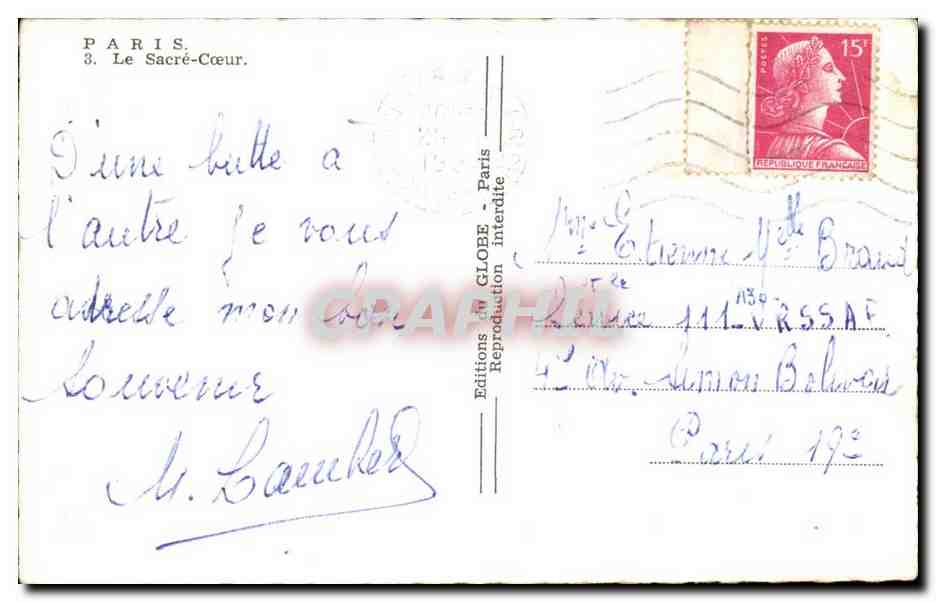 PARIS.
3. Le Sacré-Cœur.
D'une butte à
l'autre je vous
adresse mon bon
souvenir
M. Lambert
Editions du GLOBE - Paris
Reproduction interdite
POSTES
15F
REPUBLIQUE FRANÇAISE
Mme Etienne Melle Braud
Service 111 URSSAF
4 Av. Simon Bolivar
Paris 19e
CPAPHIL